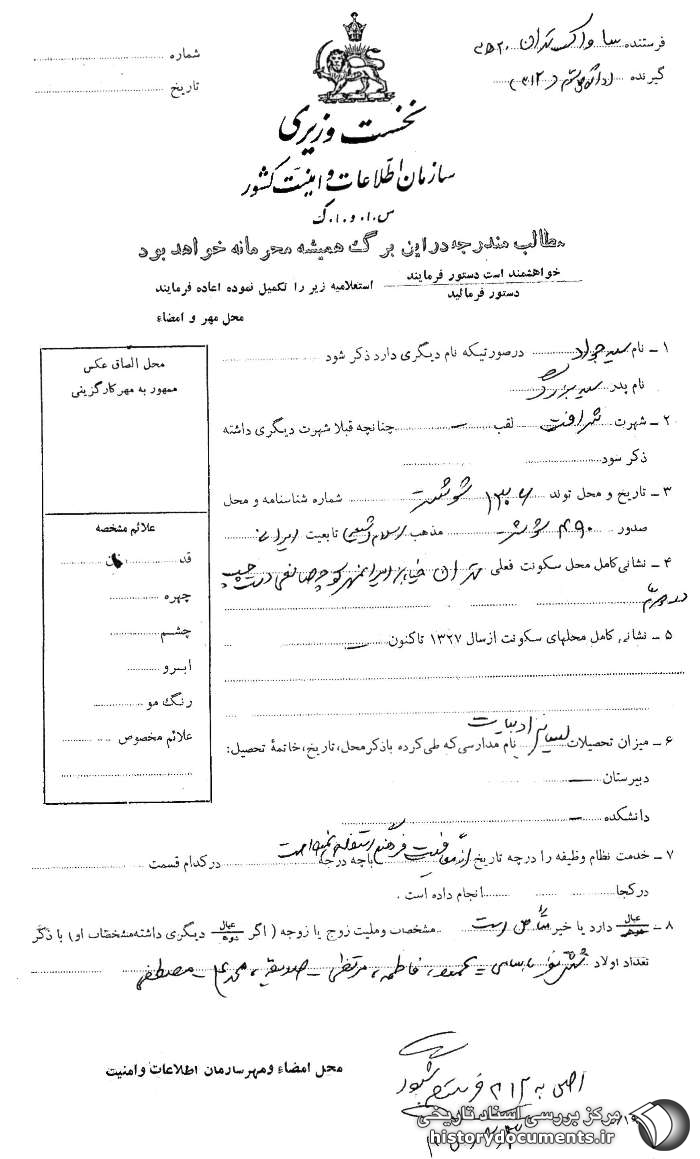 فرستنده ساواک تهران ۲۰ ه‍ ۳
گیرنده اداره کل سوم (۳۱۲)
شماره
تاریخ
نخست وزیری
سازمان اطلاعات و امنیت کشور
س.ا.و.ا.ک
مطالب مندرجه در این برگ همیشه محرمانه خواهد بود
خواهشمند است دستور فرمایند
دستور فرمائید
استعلامیه زیر را تکمیل نموده اعاده فرمایند
محل مهر و امضاء
محل الصاق عکس
ممهور به مهر کارگزینی
علائم مشخصه
قد
چهره
چشم
ابرو
رنگ مو
علائم مخصوص
۱ - نام سید جواد درصورتیکه نام دیگری دارد ذکر شود
نام پدر سید بزرگ
۲ - شهرت شرافت لقب - چنانچه قبلا شهرت دیگری داشته
ذکر شود
۳ - تاریخ و محل تولد ۱۳۰۷ شوشتر شماره شناسنامه و محل
صدور ۴۹۰ شوشتر مذهب اسلام شیعی تابعیت ایرانی
۴ - نشانی کامل محل سکونت فعلی تهران خیابان ایرانمهر کوچه صانعی دست چپ
درب دوم
۵ - نشانی کامل محلهای سکونت از سال ۱۳۲۷ تاکنون -
۶ - میزان تحصیلات لیسانس ادبیات نام مدارسی که طی کرده با ذکر محل، تاریخ، خاتمهٔ تحصیل:
دبیرستان -
دانشکده -
۷ - خدمت نظام وظیفه را درچه تاریخ از معافیت فرهنگی استفاده نموده است باچه درجه درکدام قسمت
درکجا انجام داده است.
۸ - عیال شوهر دارد یا خیر متأهل است مشخصات وملیت زوج یا زوجه (اگر عیال دوم دیگری داشته مشخصات او) با ذکر
تعداد اولاد شش نفر باسامی - فاطمه، مرتضی - صدیقه، محمدعلی - مصطفی
محل امضاء ومهر سازمان اطلاعات وامنیت
اصل به ۳۱۲ فرستاده شود
مرکز بررسی اسناد تاریخی
historydocuments.ir